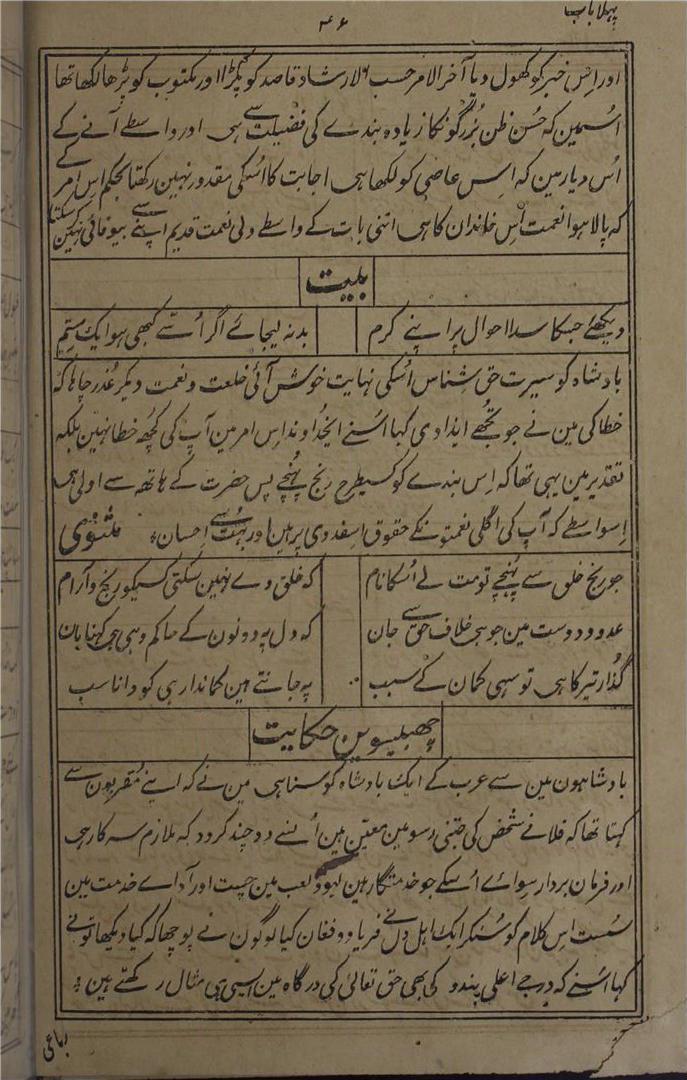 پہلا باب
۴۶
اور اِس خبر کو کھول دیا آخر الامر حسب الارشاد قاصد کو پکڑا اور مکتوب کو پڑھا لکھا تھا
اسمین کہ حُسن ظن بُزرگونکا زیادہ بندے کی فضیلت سے ہی اور واسطے آنے کے
اُس دیار مین کہ اس عاصی کو لکھا ہی اجابت کا اُسکی مقدور نہین رکھتا بحکم اس امر کے
کہ پالا ہوا نعمت اُس خاندان کا ہی اتنی بات کے واسطے ولی نعمت قدیم اپنے سے بیوفائی نہین کر سکتا
بیت
دیکھئے جسکا سدا احوال پر اپنے کرم
بد نہ لیجائے اگر اُس سے کبھی ہو ایک ستم
بادشاہ کو سیرت حق شناس اُسکی نہایت خوش آئی خلعت و نعمت دیکر عُذر چاہا کہ
خطا کی مین نے جو تجھے ایذا دی کہا اُسنے ایخداوند اس امر مین آپ کی کچھ خطا نہین بلکہ
تقدیر مین یہی تھا کہ اِس بندے کو کسیطرح رنج پُہنچے پس حضرت کے ہاتھ سے اولی ہی
اسواسطے کہ آپ کی اگلی نعمتونکے حقوق اس فدوی پر ہین اور بہت سے احسان مثنوی
جو رنج خلق سے پُہنچے تو مت لے اُسکا نام
کہ خلق دے نہین سکتی کسیکو رنج و آرام
عدو و دوست مین جو ہی خلاف حق سے جان
کہ دل پہ دونون کے حاکم وہی ہی کہنا مان
گذار تیر کا ہی تو سہی کمان کے سبب
پہ جانتے ہین کماندار ہی کو دانا سب
چھبیسوین حکایت
بادشاہون مین سے عرب کے ایک بادشاہ کو سنا ہی مین نے کہ اپنے مقربون سے
کہتا تھا کہ فلانے شخص کی جتنی رسومین معین ہین اُسنے دو چند کر دو کہ ملازم سرکار ہی
اور فرمان بردار سوائے اُسکے جو خدمتگار ہین لہو و لعب مین چست اور ادائے خدمت مین
سست اس کلام کو سُنکر ایک اہل دل نے فریاد و فغان کیا لوگون نے پوچھا کہ کیا دیکھا تو نے
کہا اُسنے کہ درجے اعلی بندونکی بھی حق تعالی کی درگاہ مین ایسی ہی مثال رکھتے ہین
رباعی